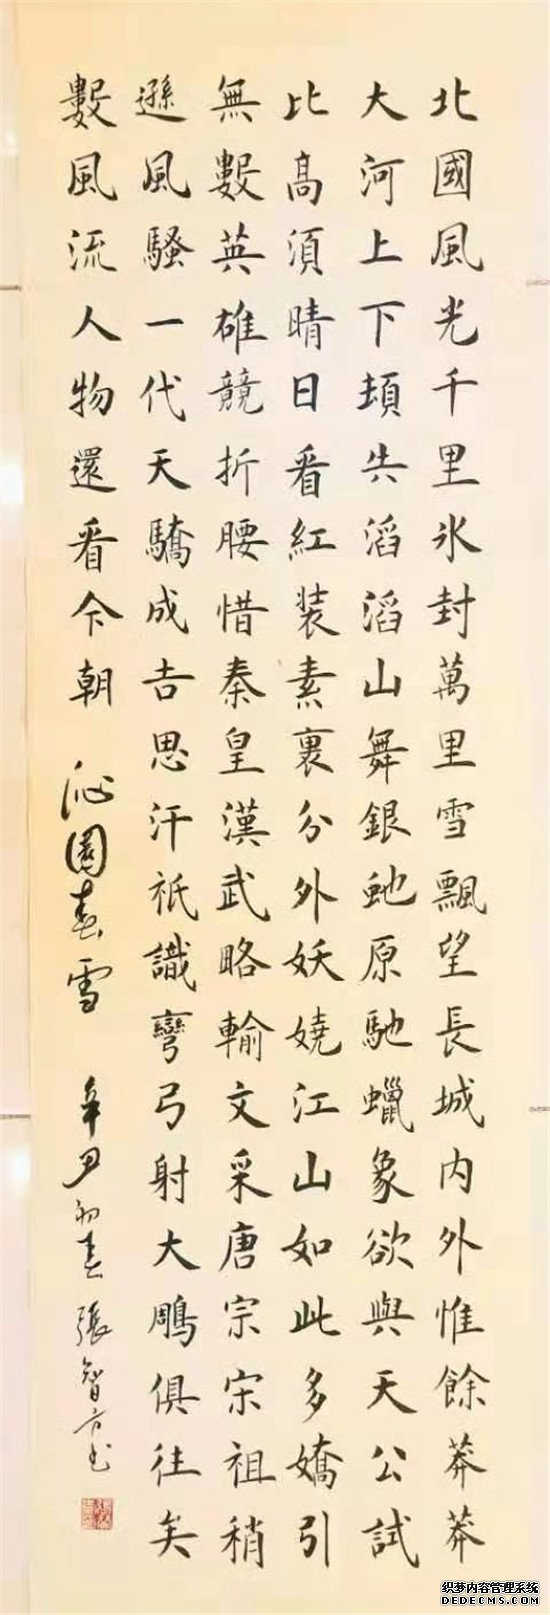 北國風光千里氷封萬里雪飄望長城内外惟餘莽莽
大河上下頓失滔滔山舞銀虵原馳蠟象欲與天公試
比高須晴日看紅装素裹分外妖嬈江山如此多嬌引
無數英雄競折腰惜秦皇漢武略輸文采唐宗宋祖稍
遜風騷一代天驕成吉思汗祇識彎弓射大鵰俱往矣
數風流人物還看今朝 沁園春雪 辛丑初春 張智方书
织梦内容管理系统
DEDECMS.COM